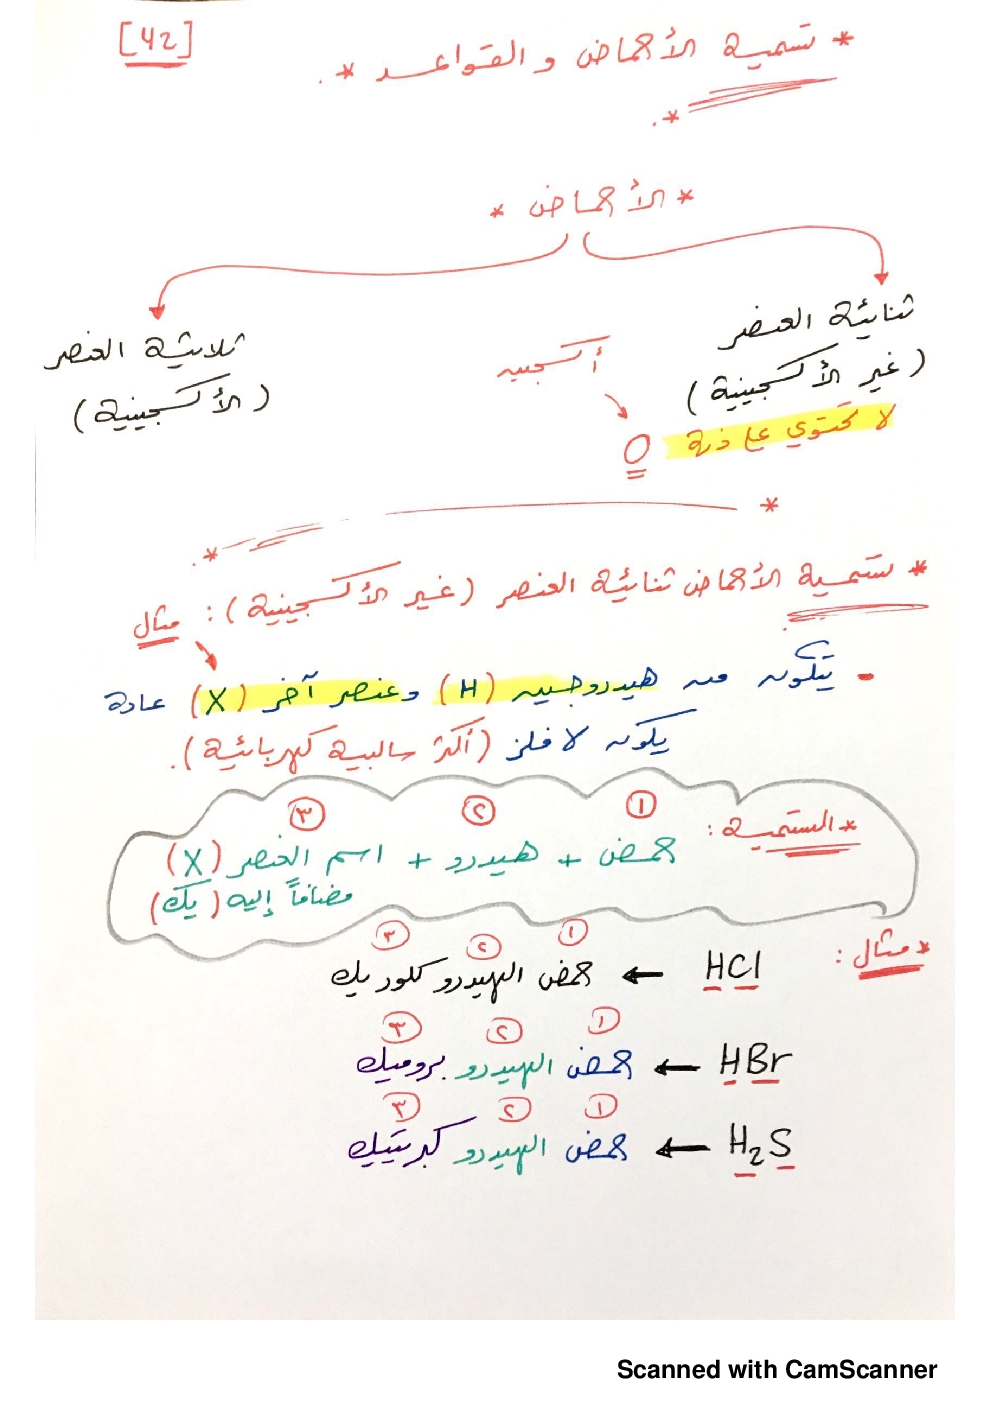 [42]
* تسمية الأحماض و القواعد *.
* الأحماض *
ثنائية العنصر
(غير الأكسجينية)
لا تحتوي على ذرة
O
أكسجين
ثلاثية العنصر
(الأكسجينية)
* تسمية الأحماض ثنائية العنصر (غير الأكسجينية): مثال
- يتكون من هيدروجين (H) وعنصر آخر (X) عادة
يكون لا فلز (أكثر سالبية كهربائية).
* التسمية:
① ② ③
حمض + هيدرو + اسم العنصر (X)
مضافاً إليه (يك)
* مثال:
① ② ③
HCl ← حمض الهيدرو كلوريك
① ② ③
HBr ← حمض الهيدرو بروميك
① ② ③
H₂S ← حمض الهيدرو كبريتيك
Scanned with CamScanner